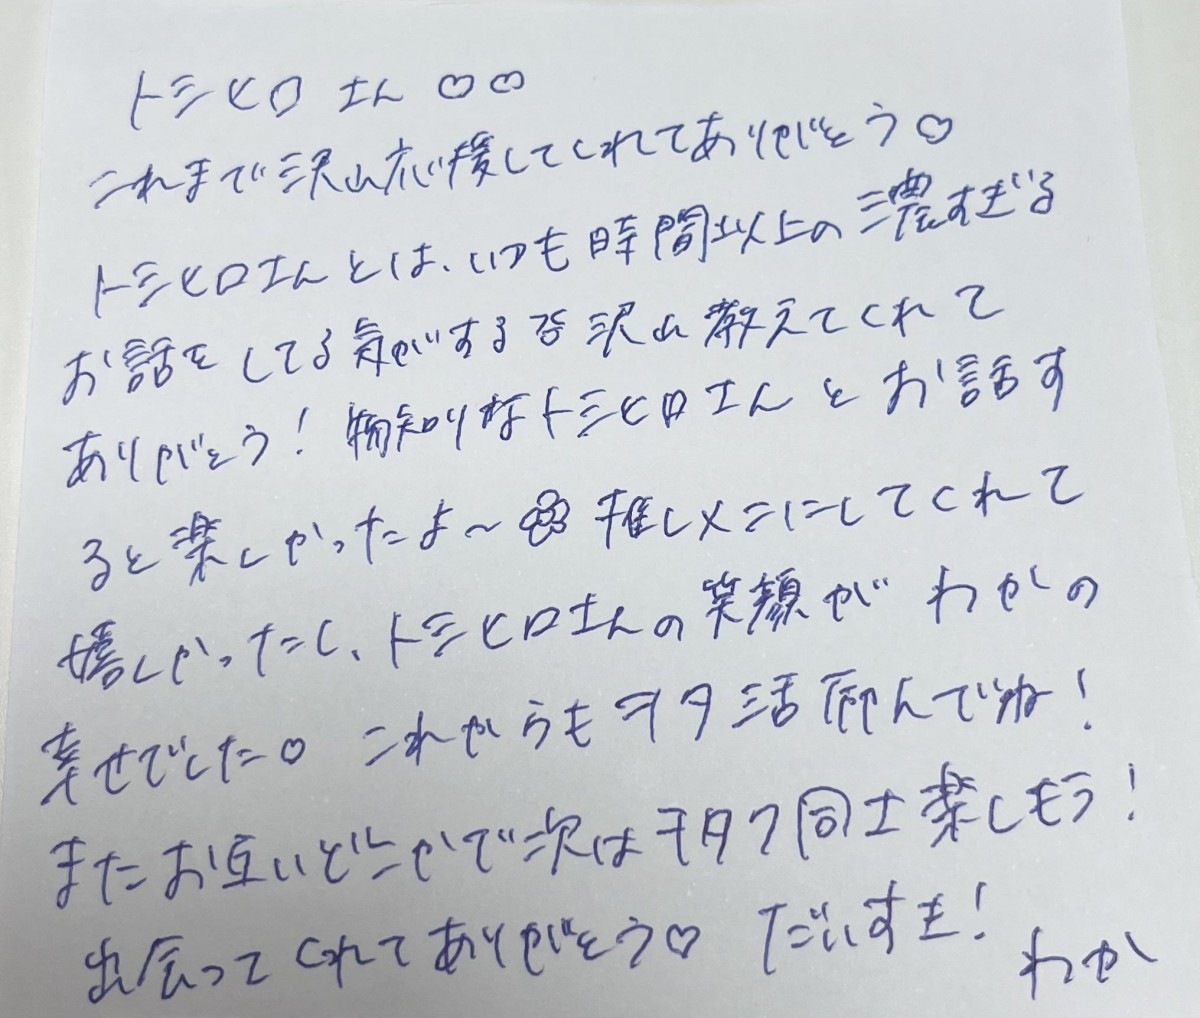 トシヒロさん♡♡
これまで沢山応援してくれてありがとう♡
トシヒロさんとは、いつも時間以上の濃すぎる
お話をしてる気がする 沢山教えてくれて
ありがとう！物知りなトシヒロさんとお話す
ると楽しかったよ〜 推しメンにしてくれて
嬉しかったし、トシヒロさんの笑顔がわかの
幸せでした♡ これからもヲタ活 んでね！
またお互いどこかで次はヲタク同士楽しもう！
出会ってくれてありがとう♡ だいすき！
わか